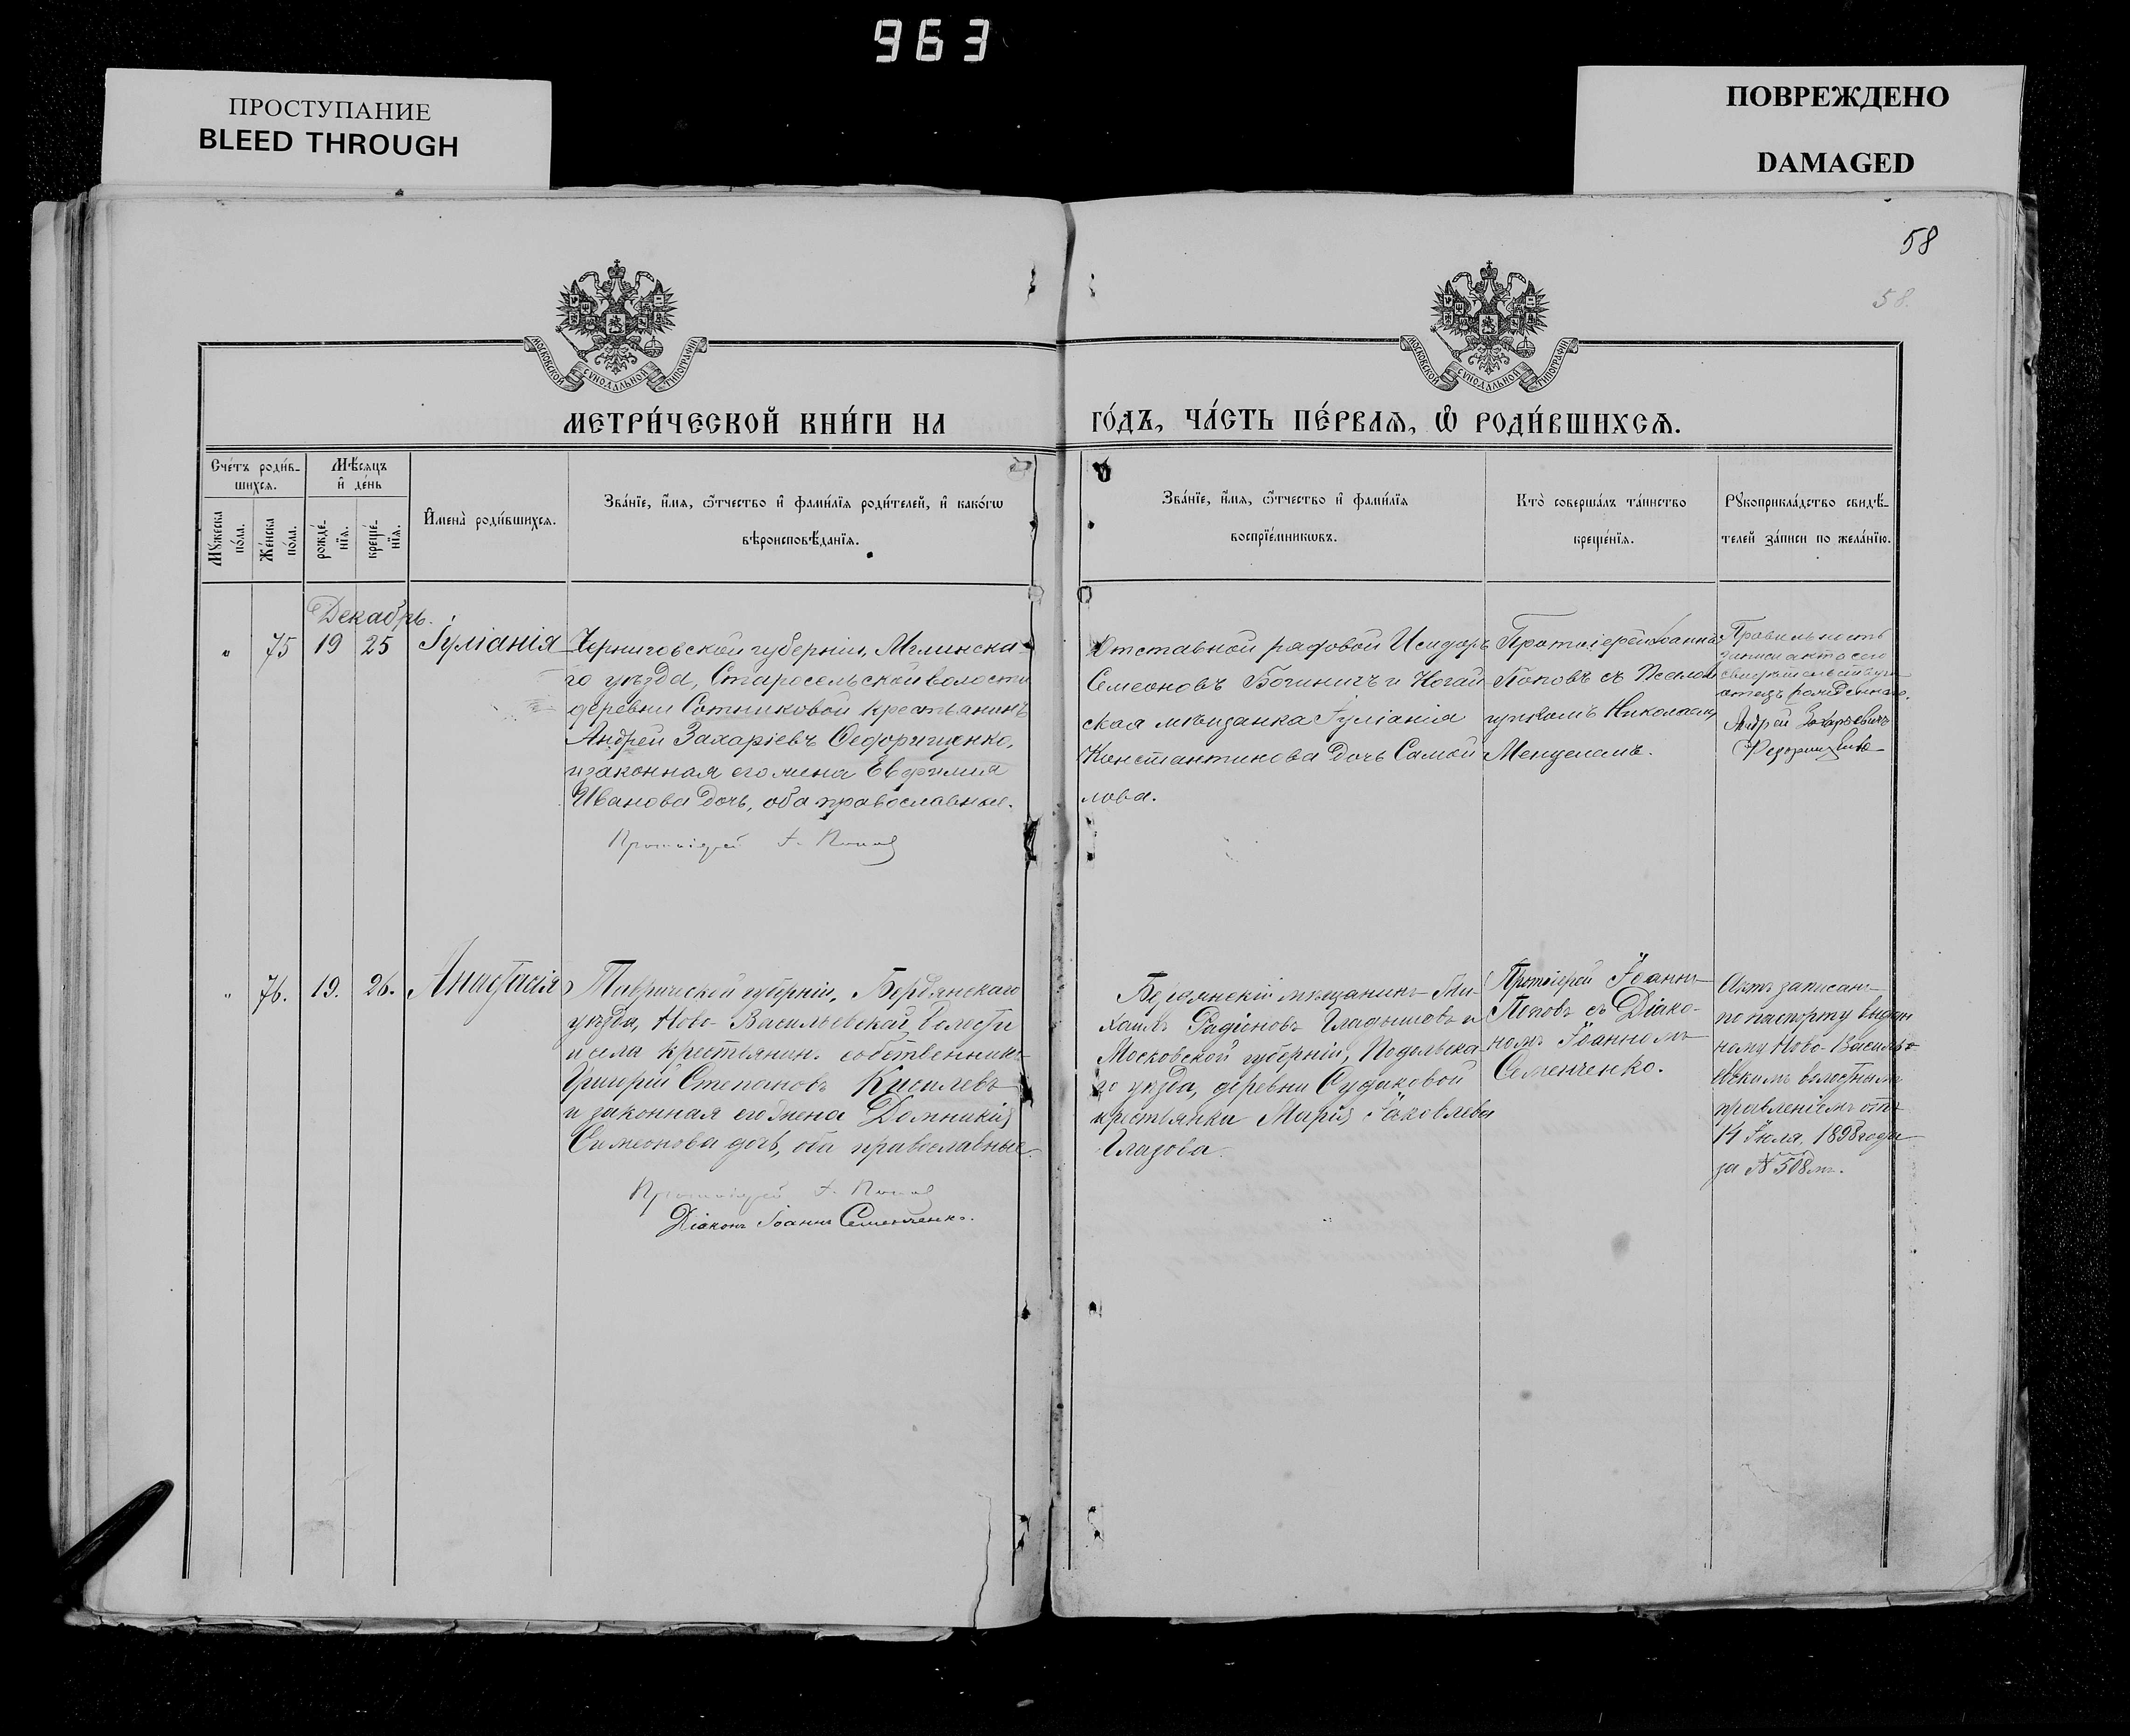 963
ПРОСТУПАНИЕ
BLEED THROUGH
ПОВРЕЖДЕНО
DAMAGED
58
58.
МОСКОВСКОЙ СѴНОДАЛЬНОЙ ТИПОГРАФІИ
МОСКОВСКОЙ СѴНОДАЛЬНОЙ ТИПОГРАФІИ
МЕТРИ́ЧЕСКОЙ КНИ́ГИ НА
ГО́ДЪ, ЧА́СТЬ ПЕ́РВАѦ, Ѽ РОДИ́ВШИХСѦ.
Сче́тъ роди́в-
шихсѧ.
Мꙋ́жеска
по́ла.
Же́нска
по́ла.
Мѣ́сѧцъ
и҆ де́нь
рожде́-
нїѧ.
креще́-
нїѧ.
И҆мена̀ роди́вшихсѧ.
Зва́нїе, и҆́мѧ, ѻ҆́тчество и҆ фами́лїѧ роди́телей, и҆ како́гѡ
вѣроисповѣ́данїѧ.
Зва́нїе, и҆́мѧ, ѻ҆́тчество и҆ фами́лїѧ
воспрїе́мникѡвъ.
Кто̀ соверша́лъ та́инство
креще́нїѧ.
Рꙋкоприкла́дство свидѣ́-
телей за́писи по жела́нїю.
Декабрь.
„ 75 19 25 Іуліанія
Черниговской губерніи, Мглинска-
го уѣзда, Старосельской волости
деревни Сотниковой крестьянинъ
Андрей Захаріевъ Ѳедорищенко,
и законная его жена Евфимия
Иванова дочь, оба православные.
Протоіерей І. Поповъ
Отставной рядовой Исидоръ
Семеоновъ и Ногай
ская мѣщанка Іуліанія
Константинова дочь Самой
лова.
Протоіерей Іоаннъ
Поповъ съ Псалом
щикомъ Николаемъ
Менцеломъ.
Правильность
записи акта сего
отецъ рожденнаго.
Андрей Захарьевичъ
„ 76. 19. 26. Анастасія
Таврической губерніи, Бердянскаго
уѣзда, Ново-Васильевской волости
и села крестьянин. собственникъ
Григорій Степановъ Киселевъ
и законная его жена Домникія
Симеонова дочь, оба православные.
Протоіерей І. Поповъ
Діаконъ Іоаннъ Семенченко.
Бердянскій мѣщанинъ Ми-
хаилъ Радіоновъ Гладышевъ и
Московской губерніи, Подольска-
го уѣзда, деревни Судаковой
крестьянка Марія Іаковлева
Глазова.
Протоіерей Іоаннъ
Поповъ съ Діако-
номъ Іоанномъ
Семенченко.
Актъ записанъ
по паспорту выдан
ному Ново-Василь-
евскимъ волостнымъ
правленіемъ отъ
14 Іюля, 1898 года
за № 508мъ.